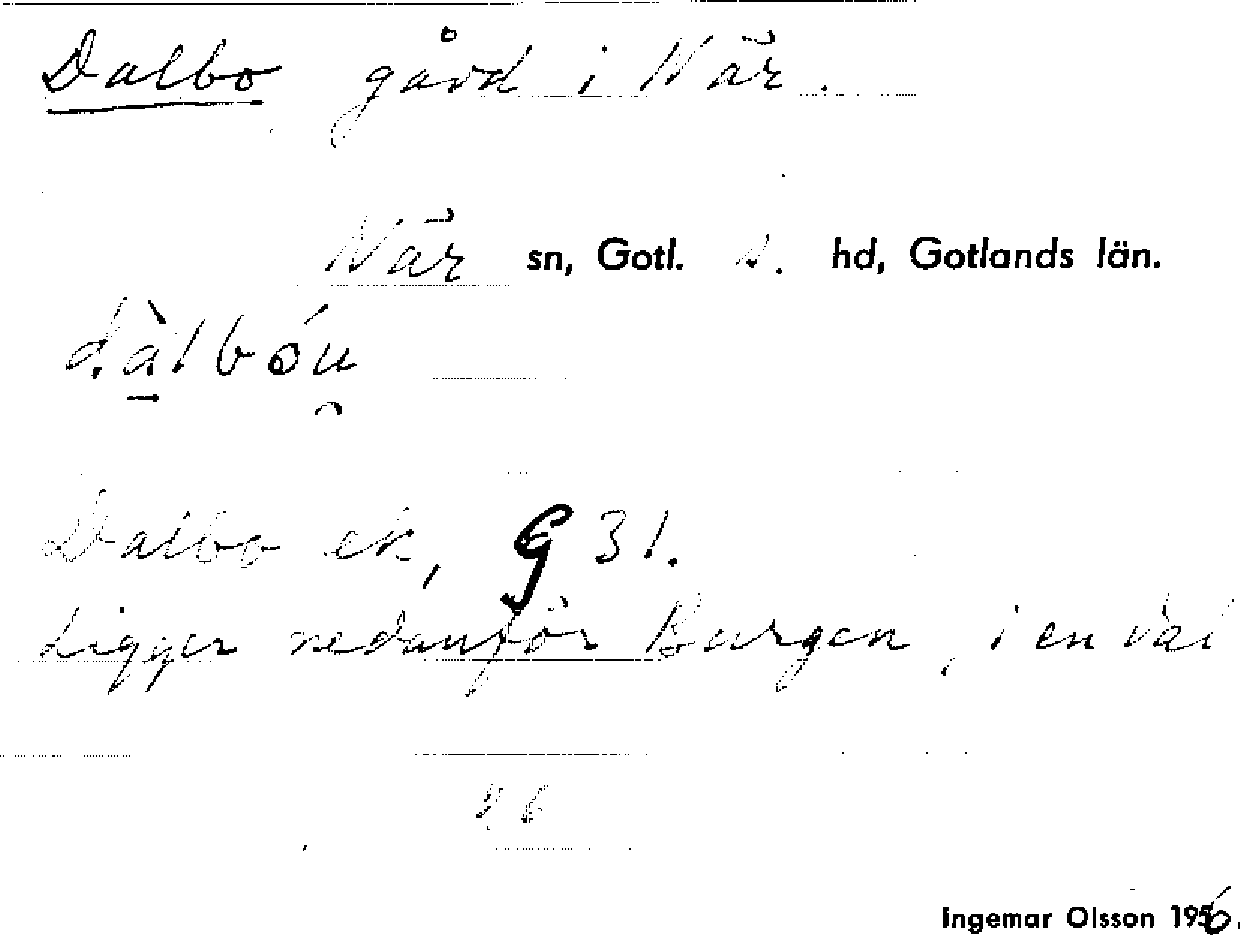 Dalbo gård i När.
När sn, Gotl. s. hd, Gotlands län.
dàlbóu̯
Dalbo ek, G 31.
Ligger nedanför Burgen, i en dal
Ingemar Olsson 1956.